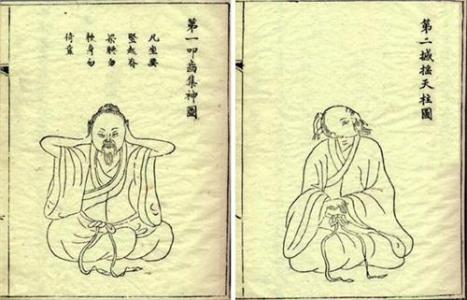 第一叩齒集神圖
凡坐要
竪起脊
梁腰勿
軟身勿
倚靠
第二撼搖天柱圖